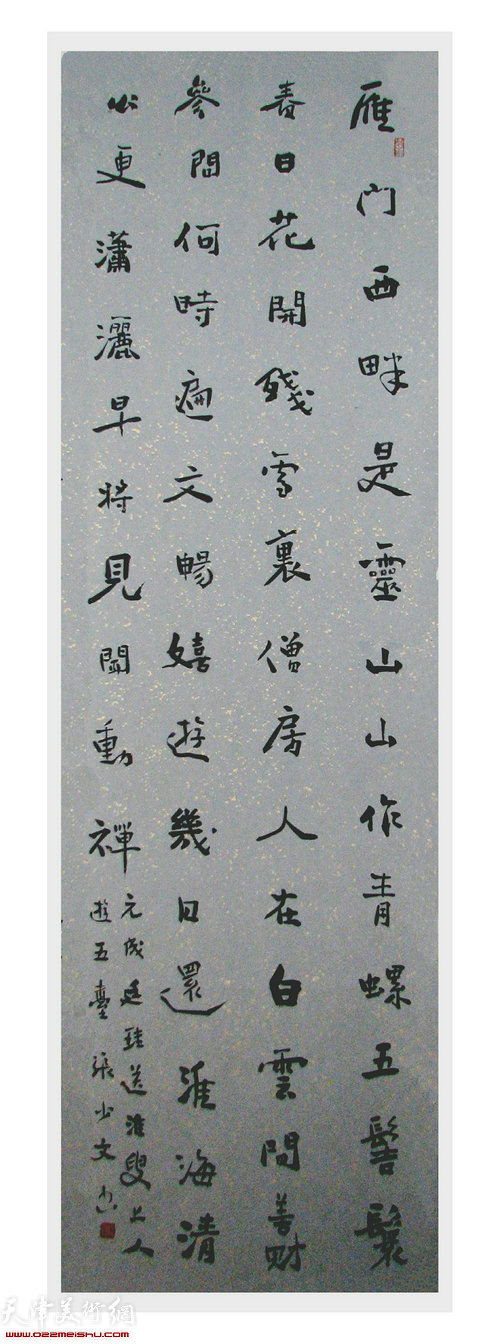 雁門西畔是靈山山作青螺五髻鬟
春日花開殘雪裏僧房人在白雲間善財
參問何時遍文暢嬉遊幾日還淮海清
公更瀟灑早將見聞動禪
元成廷珪送淮叟上人
遊五臺 張少文
天津美術網
www.022meishu.com